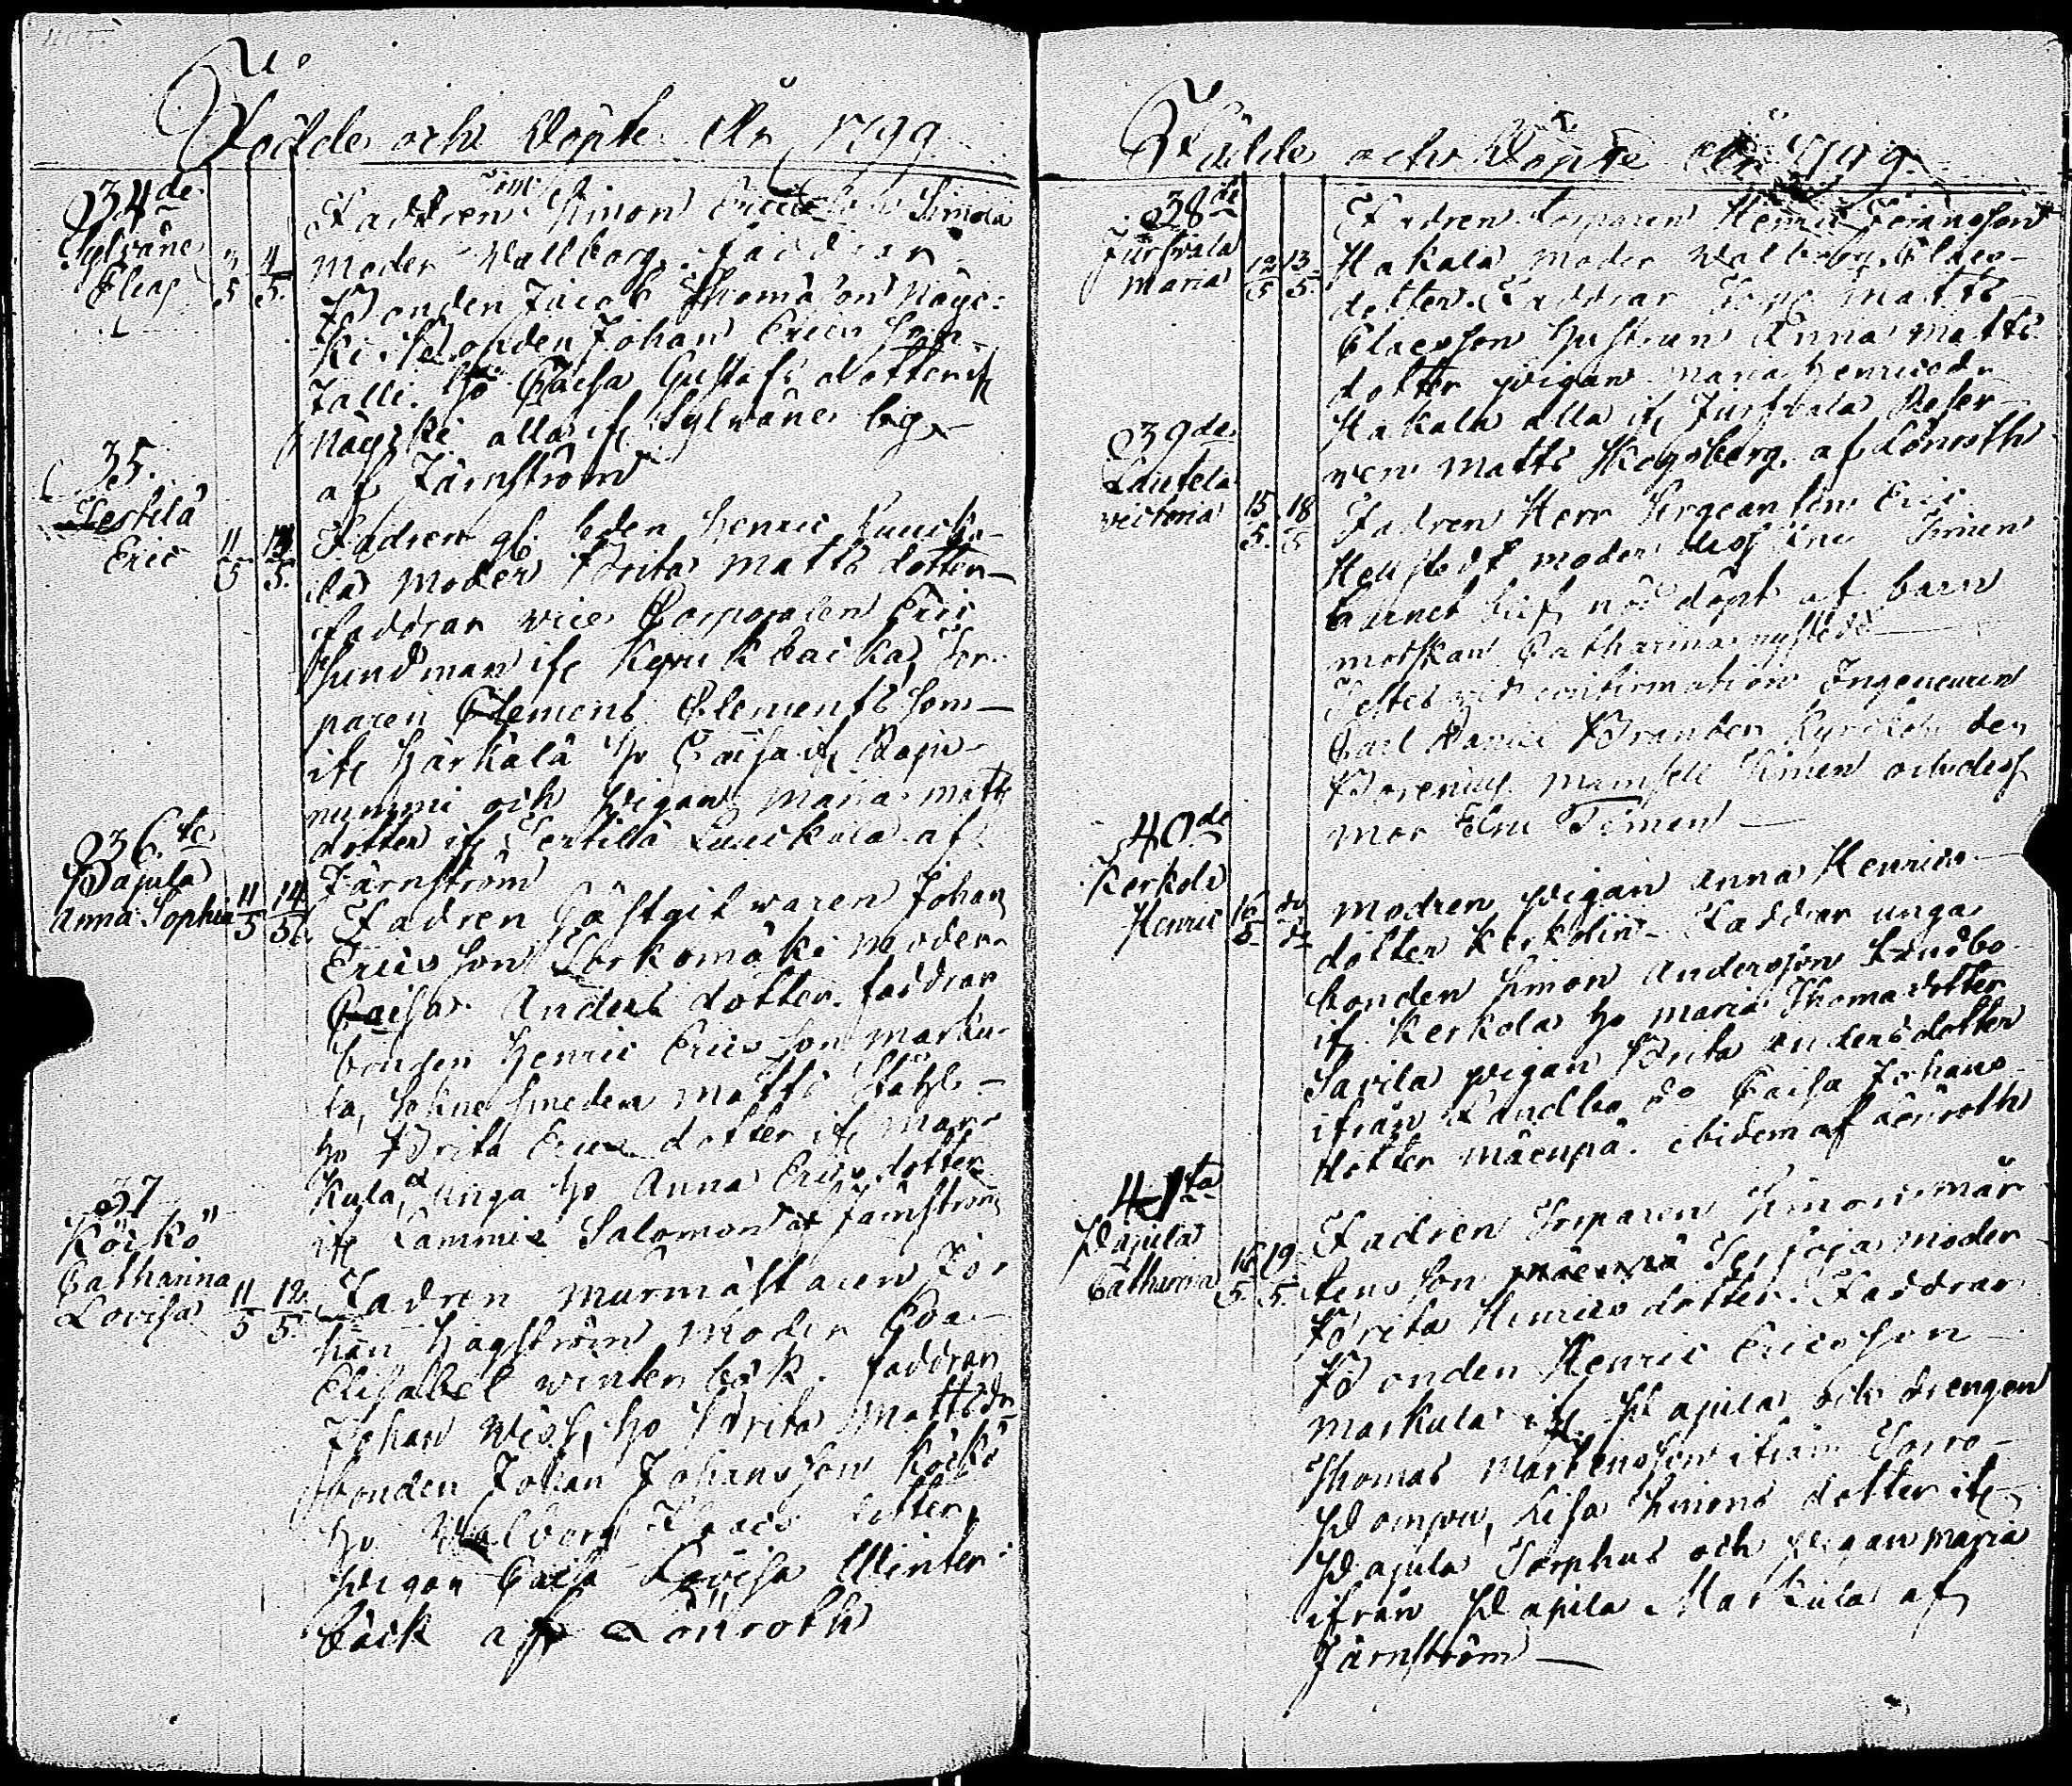 Födde och Döpte År 1799
34de
Sylväne
Elias
3/5 4/5
Fadren Simon Ericsson Simola
Moder Wallborg. faddrar
Bonden Jacob Thomasson Näys-
ki Bonden Johan Ericsson
Jalli. Ho Caisa Gustafs dotter if
Näyski alla if Sylväne by
af Järnström
35.
Testilä
Eric
11/5 5.
Fadren gl. Henric
Moder Brita Matts dotter
faddrar vice Corporalen Eric
Sundman if tor-
paren Clemens Clements son
if Härkälä ho Caisa if
nummi och Pigan Maria Matts
dotter if af
Järnström
36te
Pajula
Anna Sophia
11/5 14/5
Fadren Gästgifwaren Johan
Ericsson Korkomäki Moder
Caisa Anders dotter. faddrar
bonden Henric Ericsson Marku-
la, Sokne smeden Matts Ståhl-
ho Brita Erics dotter if Mar-
kula, unga ho Anna Erics dotter
if Lammis Salomon af Järnström
37
Köikö
Catharina
Lovisa
11/5 12/5.
Fadren Murmästaren Jo-
han Hagström Moder Eva
Elisabet Winterbäk. faddrar
Johan ho Brita Mattsdr
bonden Johan Johansson Köikö
ho Walborg Isacs dotter,
Pigan Caisa Lovisa Winter-
bäck af Lönroth
Födde och Döpte År 1799.
38de
Maria
12/5 13/5.
Fadren torparen Henric Johansson
Hakala moder Walborg Claes-
dotter. Faddrar Matts
Claesson Hustrun Anna Matts
dotter pigan Maria Henricsdr
Hakala alla if Reser-
ven Matts Skogsberg. af Lönroth
39de
Lautela
Victoria
15/5. 18/5
Fadren Herr Sergeanten Eric
Hellstedt moder dess Fru Timen
barnet blef nöddöpt af barn
morskan Catharina Nystedt
Testes vid confirmation Ingenieuren
Carl Brander
Borenius Mamsell Timen och dess
mor Fru Timen
40de
Kerkola
Henric
16/5
modren pigan Anna Henrics
dotter Kerkolin. Faddrar unga
bonden Simon Andersson Landbo
if Kerkola ho Maria Thoma dotter
Savila pigan Brita Anders dotter
ifrån Landbo do Caisa Johans
dotter Mäenpä. ibidem af Lönroth
41ta
Pajula
Catharina
18/5. 19/5.
Fadren Torparen Simon Mår
tens son moder
Brita Henrics dotter. Faddrar
Bonden Henric Ericsson
Markula if Pajula och drengen
Thomas Mårtensson ifrån
Lisa Simons dotter if
Pajula Torphus och pigan Maria
ifrån Pajula Markula af
Järnström